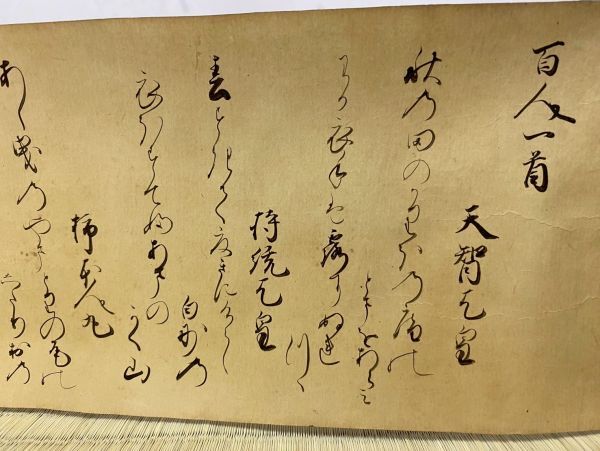 百人一首
天智天皇
秋乃田のかりほの廬の
とまをあらみ
わか衣手は露にぬれ
つゝ
持統天皇
春すきて夏きにけらし
白妙乃
衣ほすてふあまの
かく山
柿本人丸
あし曳乃やまとりの尾の
したり おの